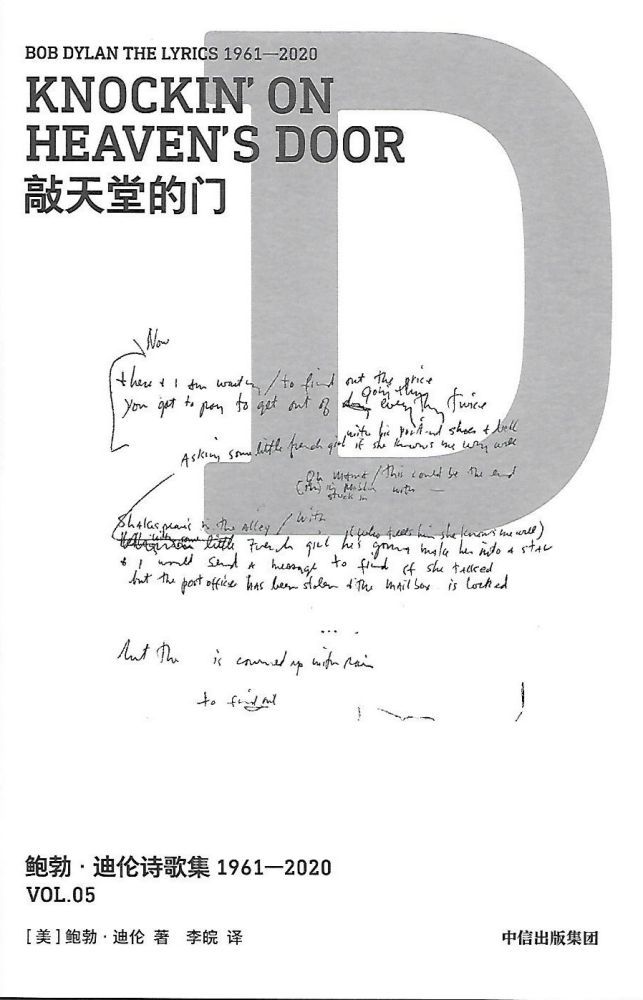 BOB DYLAN THE LYRICS 1961—2020
KNOCKIN' ON
HEAVEN'S DOOR
敲天堂的门
D
Now
there & I am waiting / to find out the price
going thru
You get to pay to get out of everything twice
with his pointed shoes & bell
Asking some little french girl if she knows me very well
Oh Mama / this could be the end
stuck in with —
Shakespeare in the alley / with
little French girl he's gonna make her into a star
& I would send a message to find if she talked
but the post office has been stolen & the mailbox is locked
...
but the is covered up with rain
to find out
鲍勃·迪伦诗歌集 1961—2020
VOL.05
[美]鲍勃·迪伦 著 李皖 译
中信出版集团